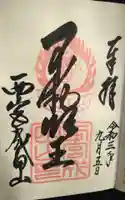 奉拝
令和三年
九月五日
不動明王
西宮成田山